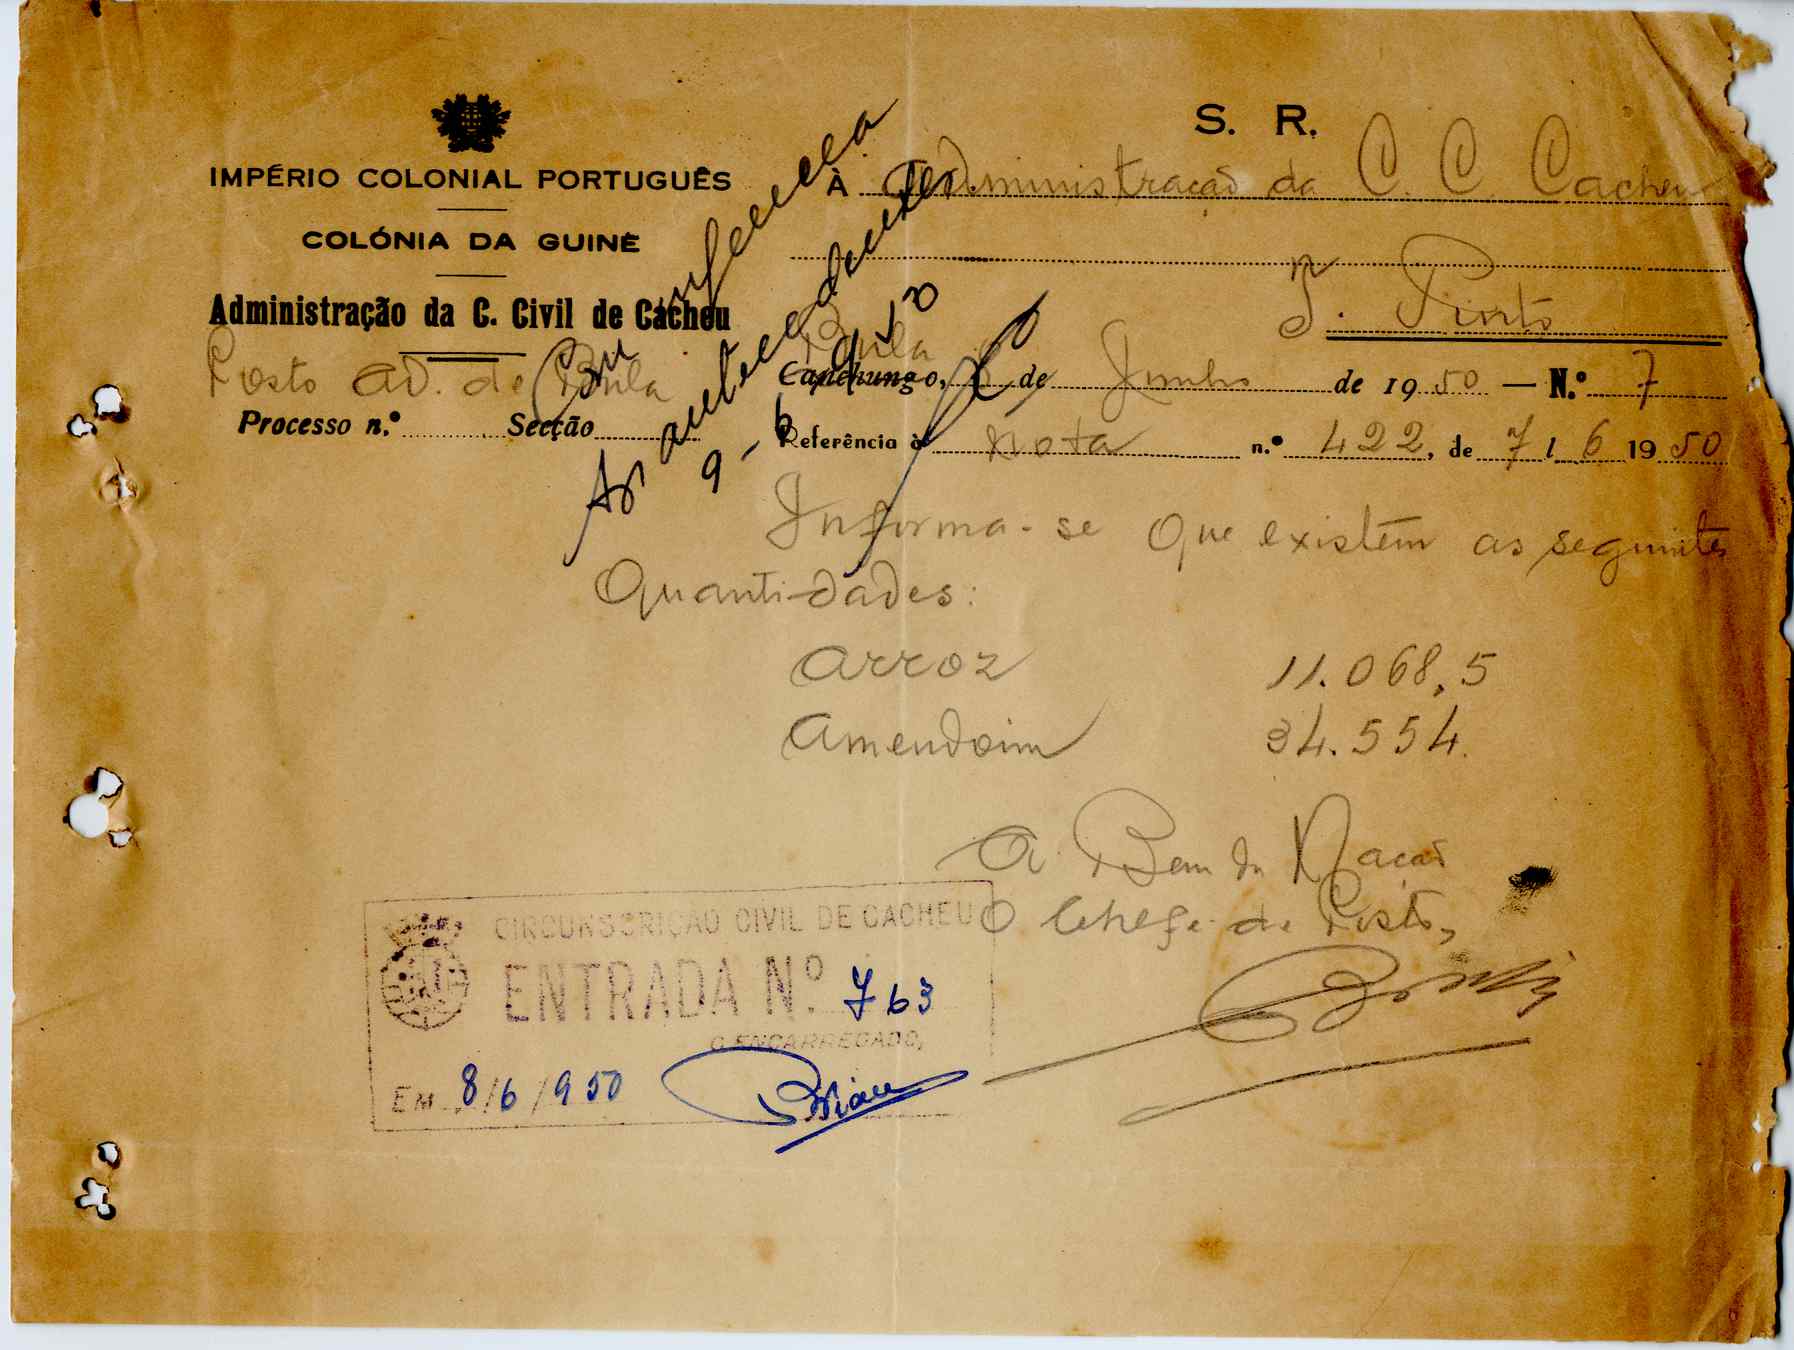 S. R.
IMPÉRIO COLONIAL PORTUGUÊS
COLÓNIA DA GUINÉ
Administração da C. Civil de Cacheu
Posto ad. de Bula
Processo n.º Secção
À Administração da C. C. Cacheu
T. Pinto
Bula
Canchungo, 8 de Junho de 1950 — N.º 7
Referência à Nota n.º 422, de 7/6 1950
Aos antecedentes.
9-6-950
Informa-se que existem as seguintes
Quantidades:
Arroz 11.068,5
Amendoim 34.554
A Bem da Nação
O Chefe de Posto,
CIRCUNSCRIÇÃO CIVIL DE CACHEU
ENTRADA N.º 763
O ENCARREGADO,
EM 8/6/950